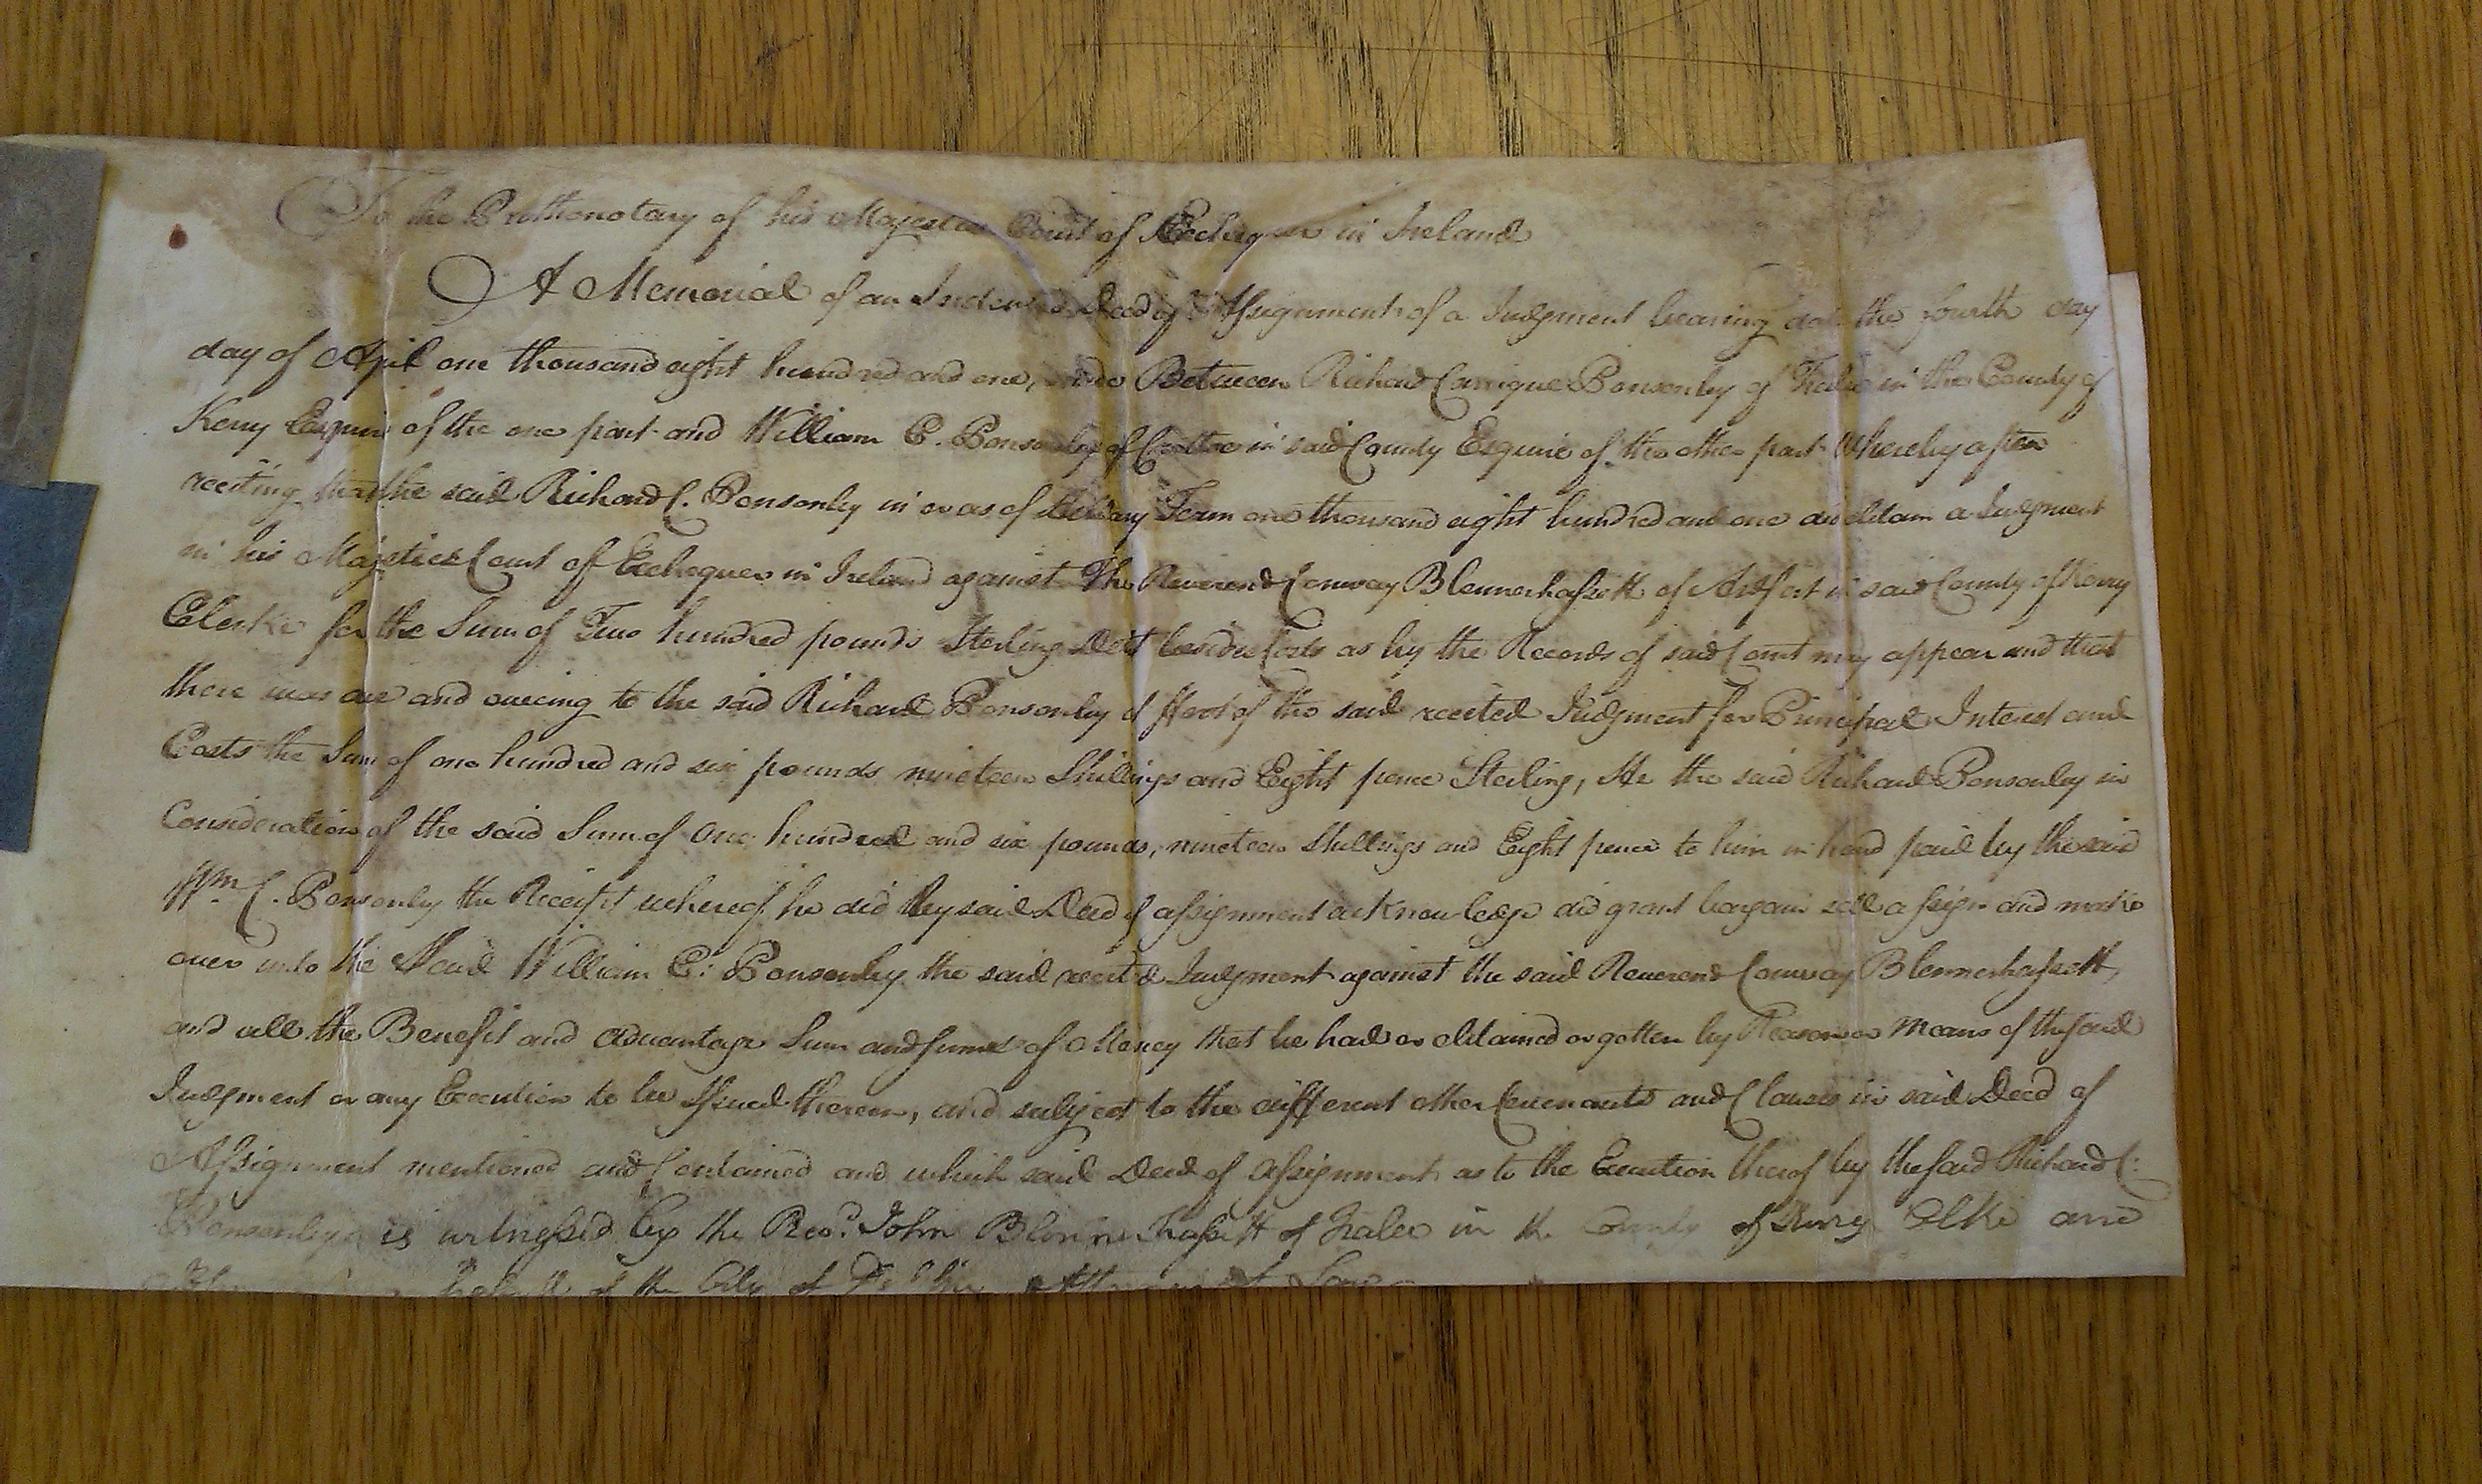 To the Prothonotary of his Majesties Court of Exchequer in Ireland
A Memorial of an Indented Deed of Assignment of a Judgment bearing date the fourth day
day of April one thousand eight hundred and one, made Between Richard Carrique Ponsonby of Tralee in the County of
Kerry Esquire of the one part and William C. Ponsonby of Crotto in said County Esquire of the other part Whereby after
reciting that the said Richard C. Ponsonby in or as of Hillary Term one thousand eight hundred and one did obtain a Judgment
in his Majesties Court of Exchequer in Ireland against The Reverend Conway Blennerhassett of Ardfert in said County of Kerry
Clerke for the Sum of Two hundred pounds Sterling Debt besides Costs as by the Records of said Court may appear and that
there was due and oweing to the said Richard Ponsonby of foot of the said recited Judgment for Principal Interest and
Costs the Sum of one hundred and six pounds nineteen Shillings and Eight pence Sterling, He the said Richard Ponsonby in
Consideration of the said Sum of One hundred and six pounds, nineteen Shillings and Eight pence to him in hand paid by the said
Wm. C. Ponsonby the Receipt whereof he did by said Deed of assignment acknowledge did grant bargain sell assign and make
over unto the Said William C: Ponsonby the said recited Judgment against the said Reverend Conway Blennerhassett,
and all the Benefit and Advantage Sum and sums of Money that be had or obtained or gotten by Reason or Means of the said
Judgment or any Execution to be Issued thereon, and subject to the different other Covenants and Clauses in said Deed of
Assignment mentioned and Contained and which said Deed of Assignment as to the Execution thereof by the said Richard C:
Ponsonby is witnessed by the Revd. John Blennerhassett of Tralee in the County of Kerry Clke and
of the City of Dublin Attorney at Law